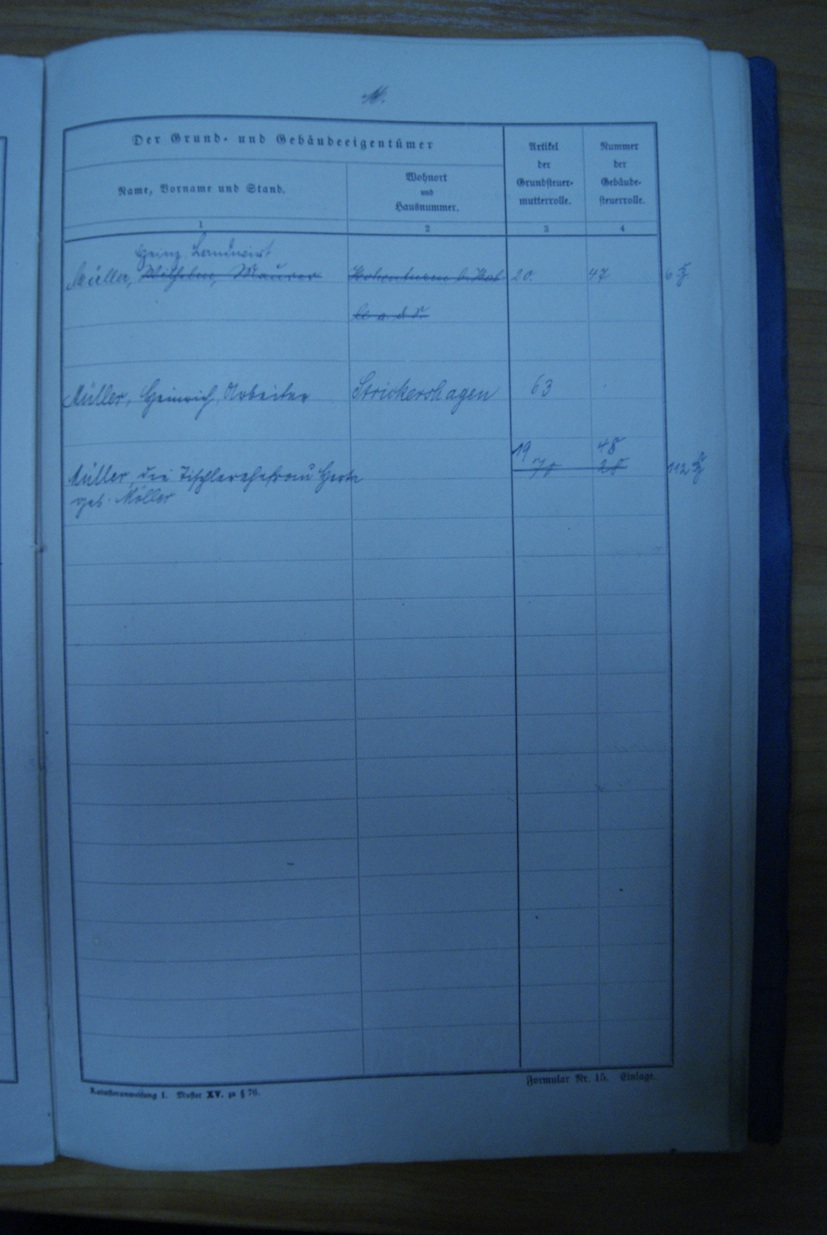 M.
Der Grund- und Gebäudeeigentümer
Artikel der Grundsteuer-mutterrolle.
Nummer der Gebäude-steuerrolle.
Name, Vorname und Stand.
Wohnort und Hausnummer.
1 2 3 4
Heinz Landwirt
Müller, Wilhelm, Maurer 20. 47
Müller, Heinrich, Arbeiter Strickershagen 63
19 48
Müller, die Tischlerehefrau
geb. Möller
Katasteranweisung I. Muster XV. zu § 76.
Formular Nr. 15. Einlage.